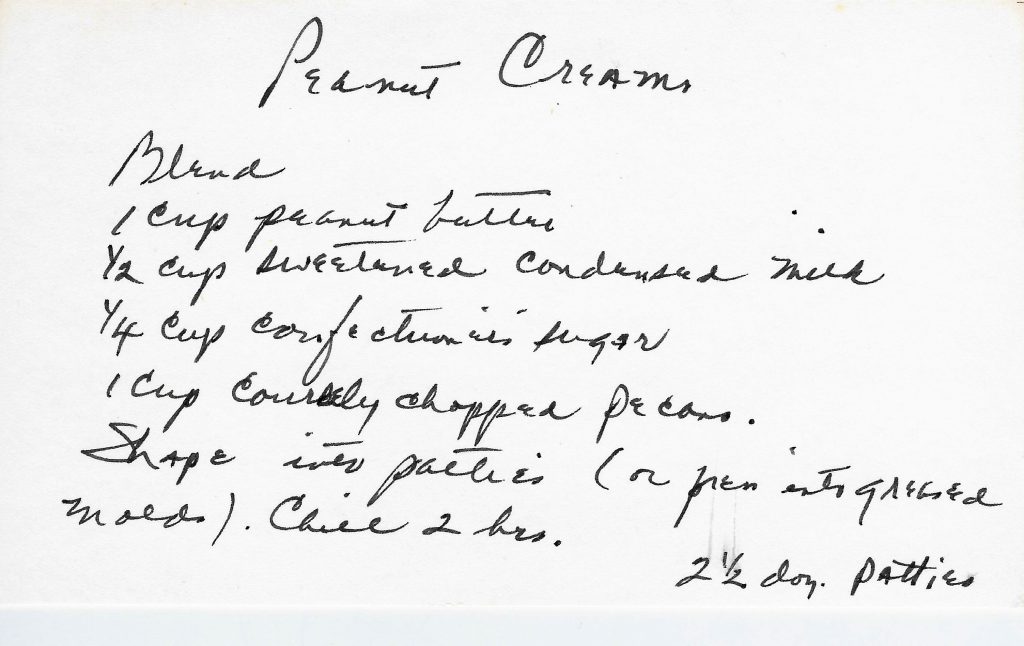 Peanut Creams
Blend
1 cup peanut butter
1/2 cup sweetened condensed milk
1/4 cup confectioners sugar
1 cup coursely chopped pecans.
Shape into patties (or press into greased
molds). Chill 2 hrs.
2 1/2 doz. patties